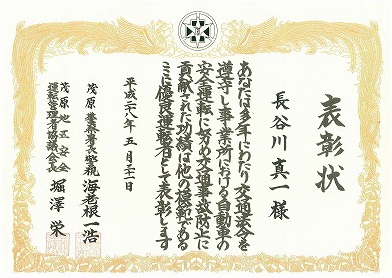 表彰状
長谷川真一様
あなたは多年にわたり交通法令を
尊守し事業所における自動車の
安全運転に努め交通事故防止に
貢献された功績は他の模範である
ここに優良運転者として表彰します
平成二八年五月二一日
茂原警察署長警視 海老根一浩
茂原地区安全
運転管理者協議会長 堀澤栄